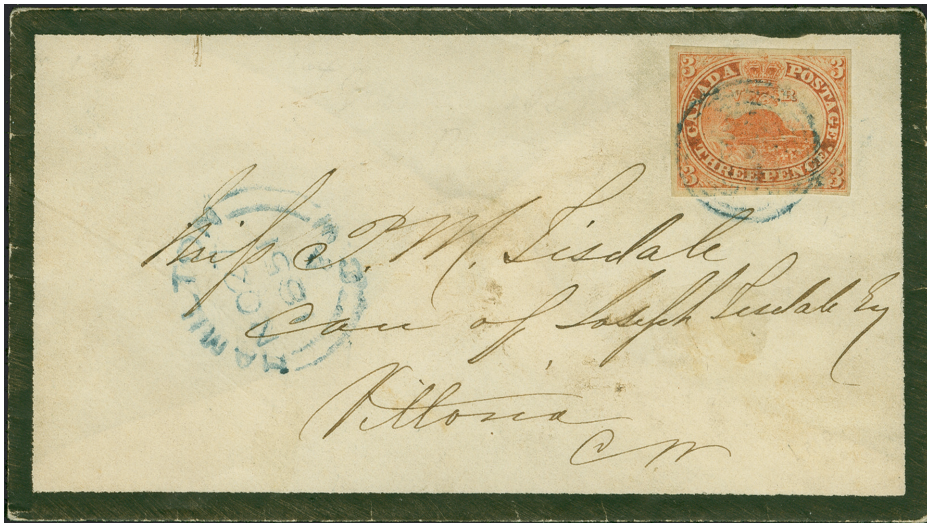 3 CANADA POSTAGE 3
3 THREE PENCE. 3
HAMILTON
Miss P. M. Tisdale
Care of Joseph Tisdale Esq
Vittoria
C W